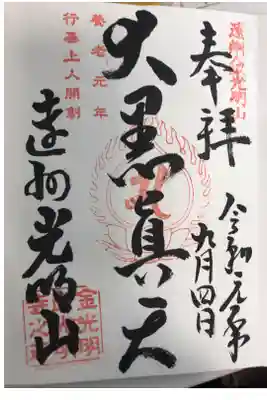 遠州乃光明山
奉拝
令和元年
九月四日
大黒真天
養老元年
行基上人開創
遠州光明山
金光明